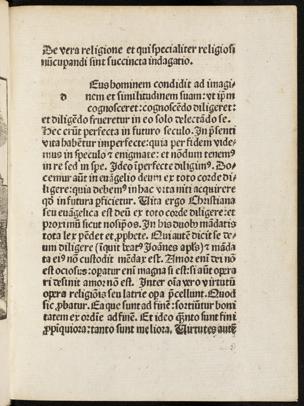 De vera religione et qui specialiter religiosi
nūcupandi sint succincta indagatio.
Eus hominem condidit ad imagi
d nem et similitudinem suam: vt ip̄m
cognosceret: cognoscēdo diligeret:
et diligēdo frueretur in eo solo delectādo se.
Hec erūt perfecta in futuro seculo. In p̄senti
vita habētur imperfecte: quia per fidem vide-
mus in speculo ⁊ enigmate: et nōdum tenemꝰ
in re sed in spe. Ideo īperfecte diligimꝰ. Do-
cemur aūt in euāgelio deum ex toto corde di-
ligere: quia debemꝰ in hac vita niti acquirere
qd̄ in futura ꝑficietur. Vita ergo Christiana
seu euāgelica est deū ex toto corde diligere: et
proximū sicut nosip̄os. In his duobꝰ mādatis
tota lex pēdet et ꝓphete. Qui autē dicit se de-
um diligere (īquit beatꝰ Joānes apl̄s) ⁊ māda
ta eiꝰ nō custodit mēdax est. Amor enī dei nō
est ociosus: opatur enī magna si est: si aūt opera
ri desinit amor nō est. Inter oīa vero virtutū
opera religiōis seu latrie opa p̄cellunt. Quod
sic ꝓbatur. Ea que sunt ad finē: sortiūtur boni
tatem ex ordīe ad finē. Et ideo q̄nto sunt fini
ꝓpīquiora: tanto sunt meliora. Virtutes autē